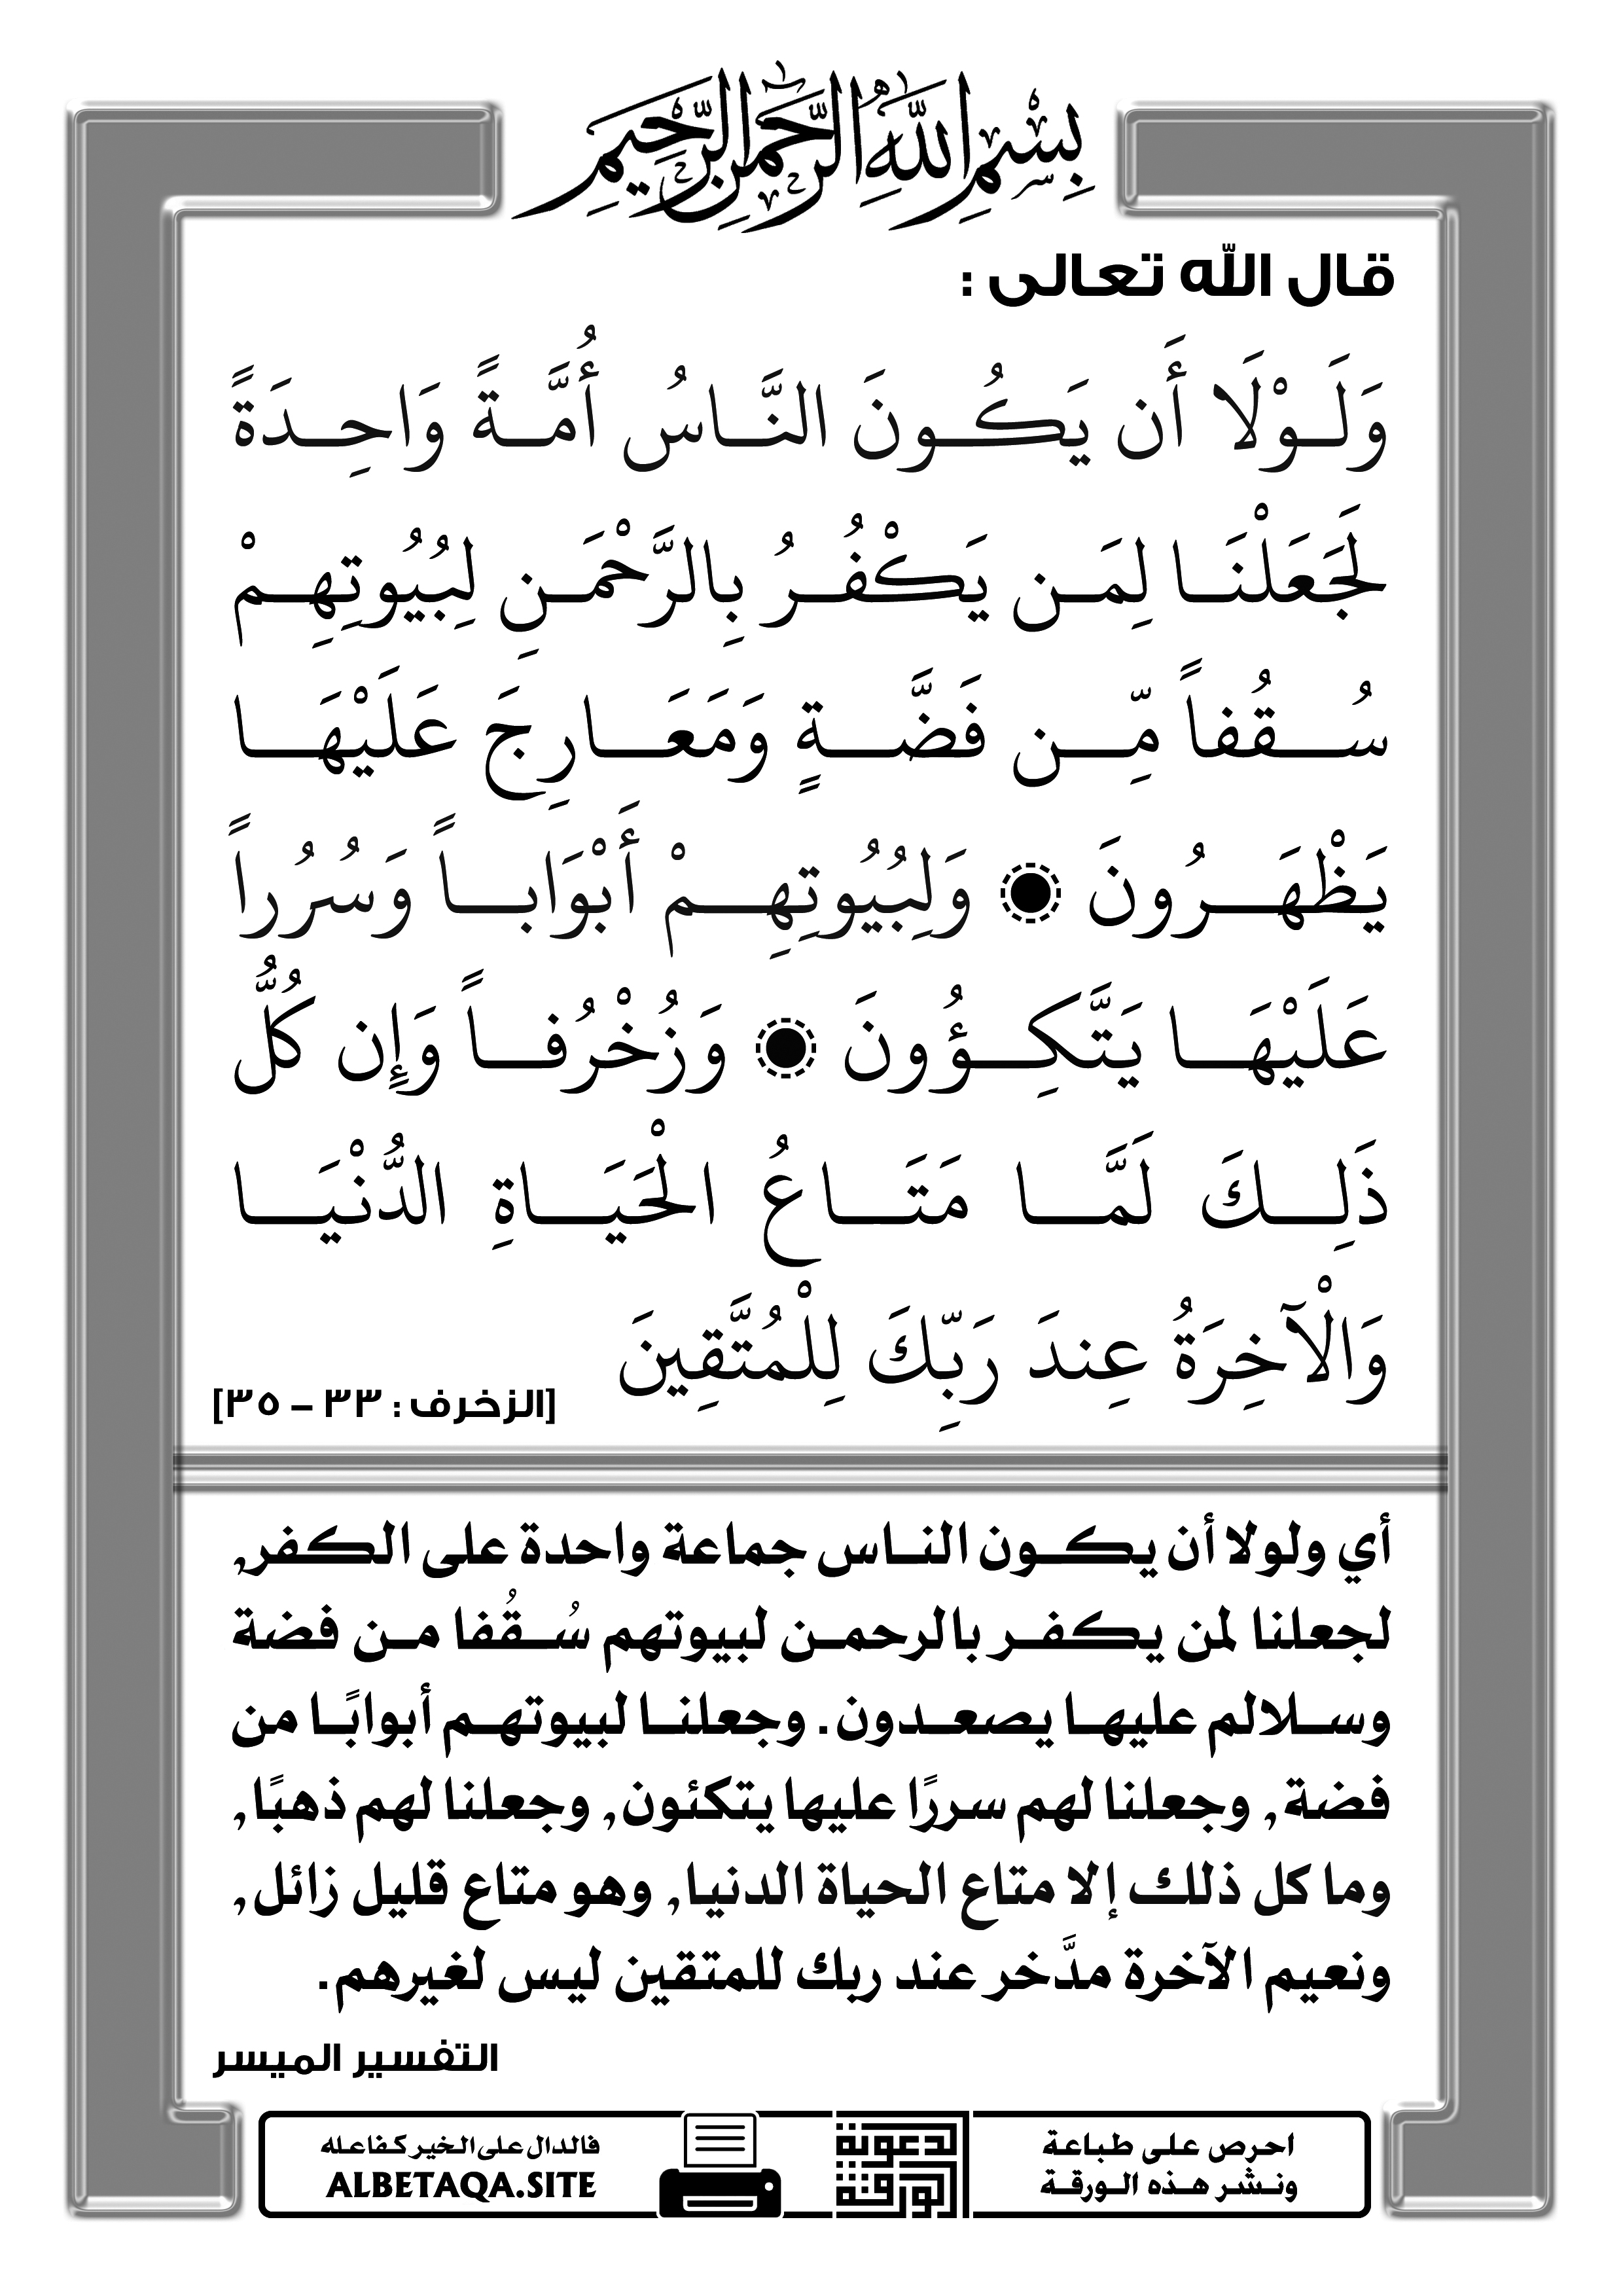 بِسْمِ اللَّهِ الرَّحْمَٰنِ الرَّحِيمِ
قال الله تعالى :
وَلَوْلَا أَن يَكُونَ النَّاسُ أُمَّةً وَاحِدَةً
لَجَعَلْنَا لِمَن يَكْفُرُ بِالرَّحْمَنِ لِبُيُوتِهِمْ
سُقُفاً مِّن فَضَّةٍ وَمَعَارِجَ عَلَيْهَا
يَظْهَرُونَ ۝ وَلِبُيُوتِهِمْ أَبْوَاباً وَسُرُراً
عَلَيْهَا يَتَّكِؤُونَ ۝ وَزُخْرُفاً وَإِن كُلُّ
ذَلِكَ لَمَّا مَتَاعُ الْحَيَاةِ الدُّنْيَا
وَالْآخِرَةُ عِندَ رَبِّكَ لِلْمُتَّقِينَ
[الزخرف : ٣٣ – ٣٥]
أي ولولا أن يكون الناس جماعة واحدة على الكفر,
لجعلنا لمن يكفر بالرحمن لبيوتهم سُقُفا من فضة
وسلالم عليها يصعدون. وجعلنا لبيوتهم أبوابًا من
فضة, وجعلنا لهم سررًا عليها يتكئون, وجعلنا لهم ذهبًا,
وما كل ذلك إلا متاع الحياة الدنيا, وهو متاع قليل زائل,
ونعيم الآخرة مدَّخر عند ربك للمتقين ليس لغيرهم.
التفسير الميسر
احرص على طباعة
ونشر هذه الورقة
الورقة
الدعوية
فالدال على الخير كفاعله
ALBETAQA.SITE